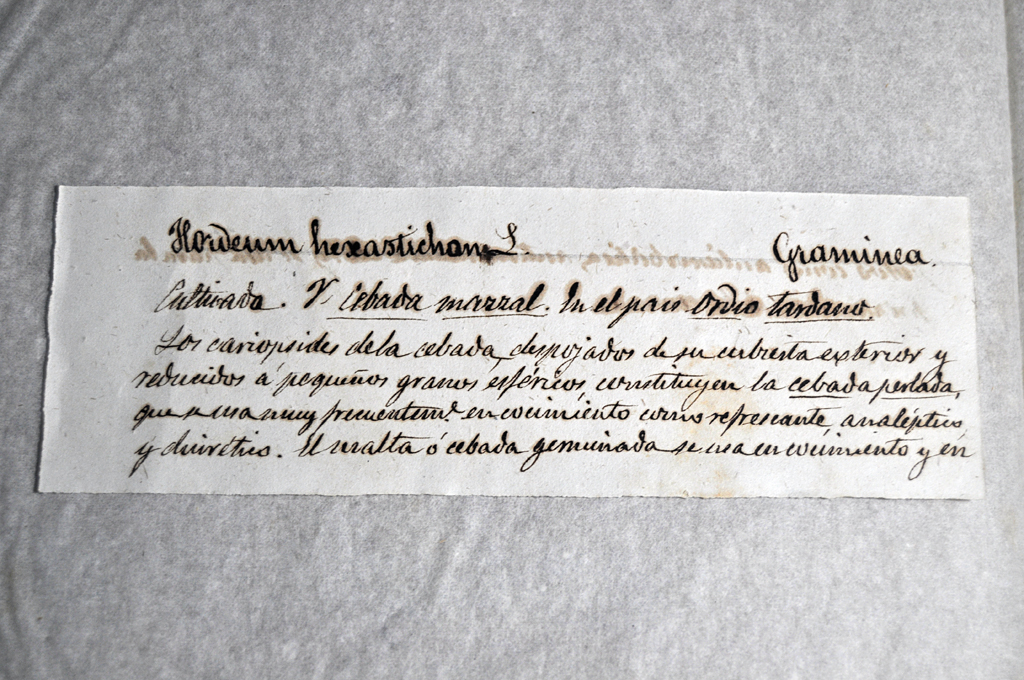 Hordeum hexastichon L. Graminea.
Cultivada. V. Cebada mazzal. En el pais Ordio tardano.
Los cariopsides de la cebada, despojados de su cubierta exterior y
reducidos á pequeños granos esféricos, constituyen la cebada perlada,
que se usa muy frecuentemte. en cocimiento como refrescante, analéptico,
y diurético. El malta ó cebada germinada se usa en cocimiento y en